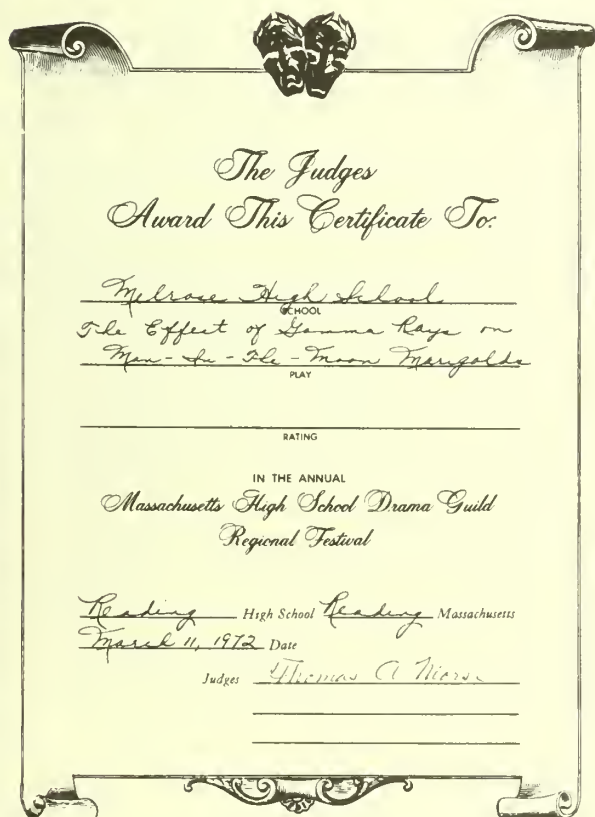 The Judges
Award This Certificate To:
Melrose High School
SCHOOL
The Effect of Gamma Rays on
Man-In-The-Moon Marigolds
PLAY
RATING
IN THE ANNUAL
Massachusetts High School Drama Guild
Regional Festival
Reading High School Reading Massachusetts
March 11, 1972 Date
Judges Thomas A